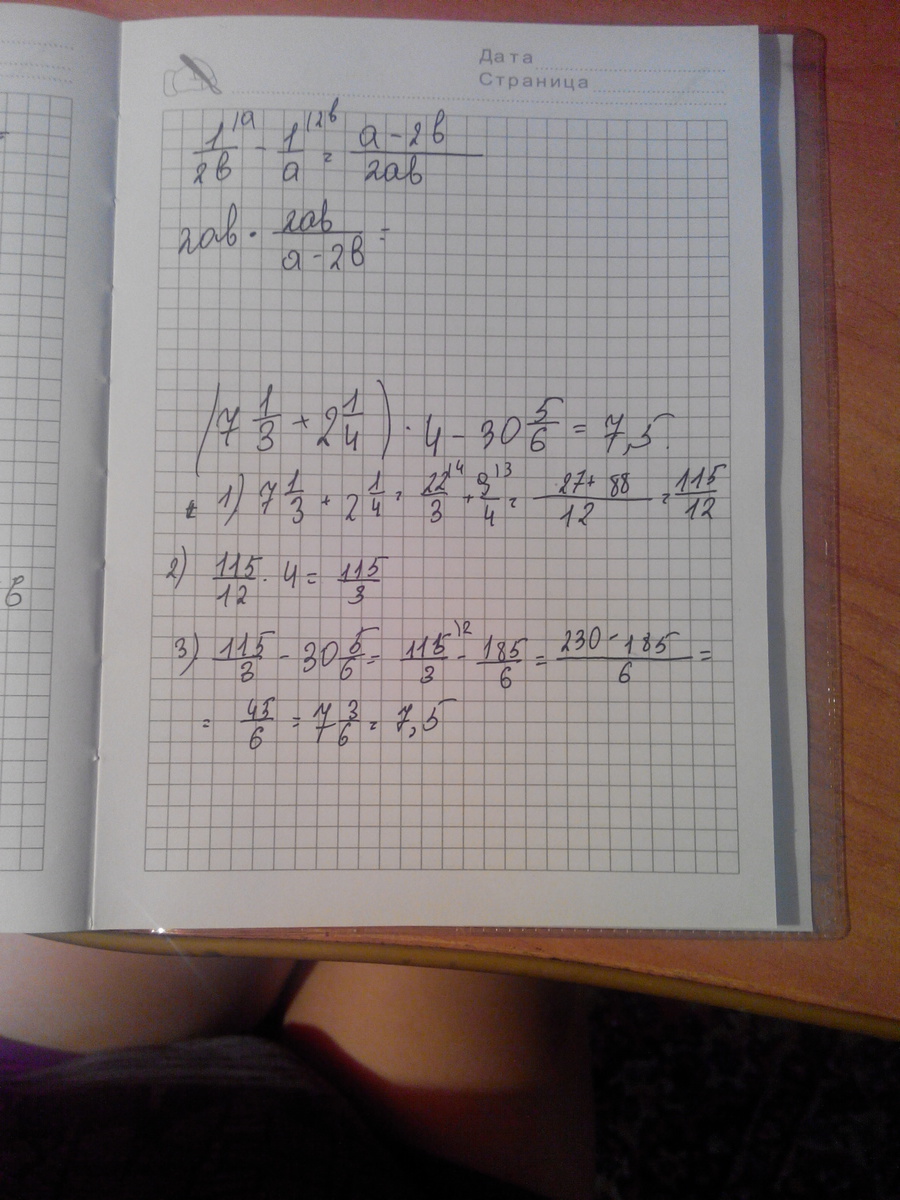 Дата
Страница
1/2в |а - 1/а |2в = а - 2в/2ав
2ав · 2ав/а - 2в =
(7 1/3 + 2 1/4) · 4 - 30 5/6 = 7,5.
1) 7 1/3 + 2 1/4 = 22/3 |4 + 9/4 |3 = 27 + 88/12 = 115/12
2) 115/12 · 4 = 115/3
3) 115/3 - 30 5/6 = 115/3 |2 - 185/6 = 230 - 185/6 =
= 45/6 = 7 3/6 = 7,5